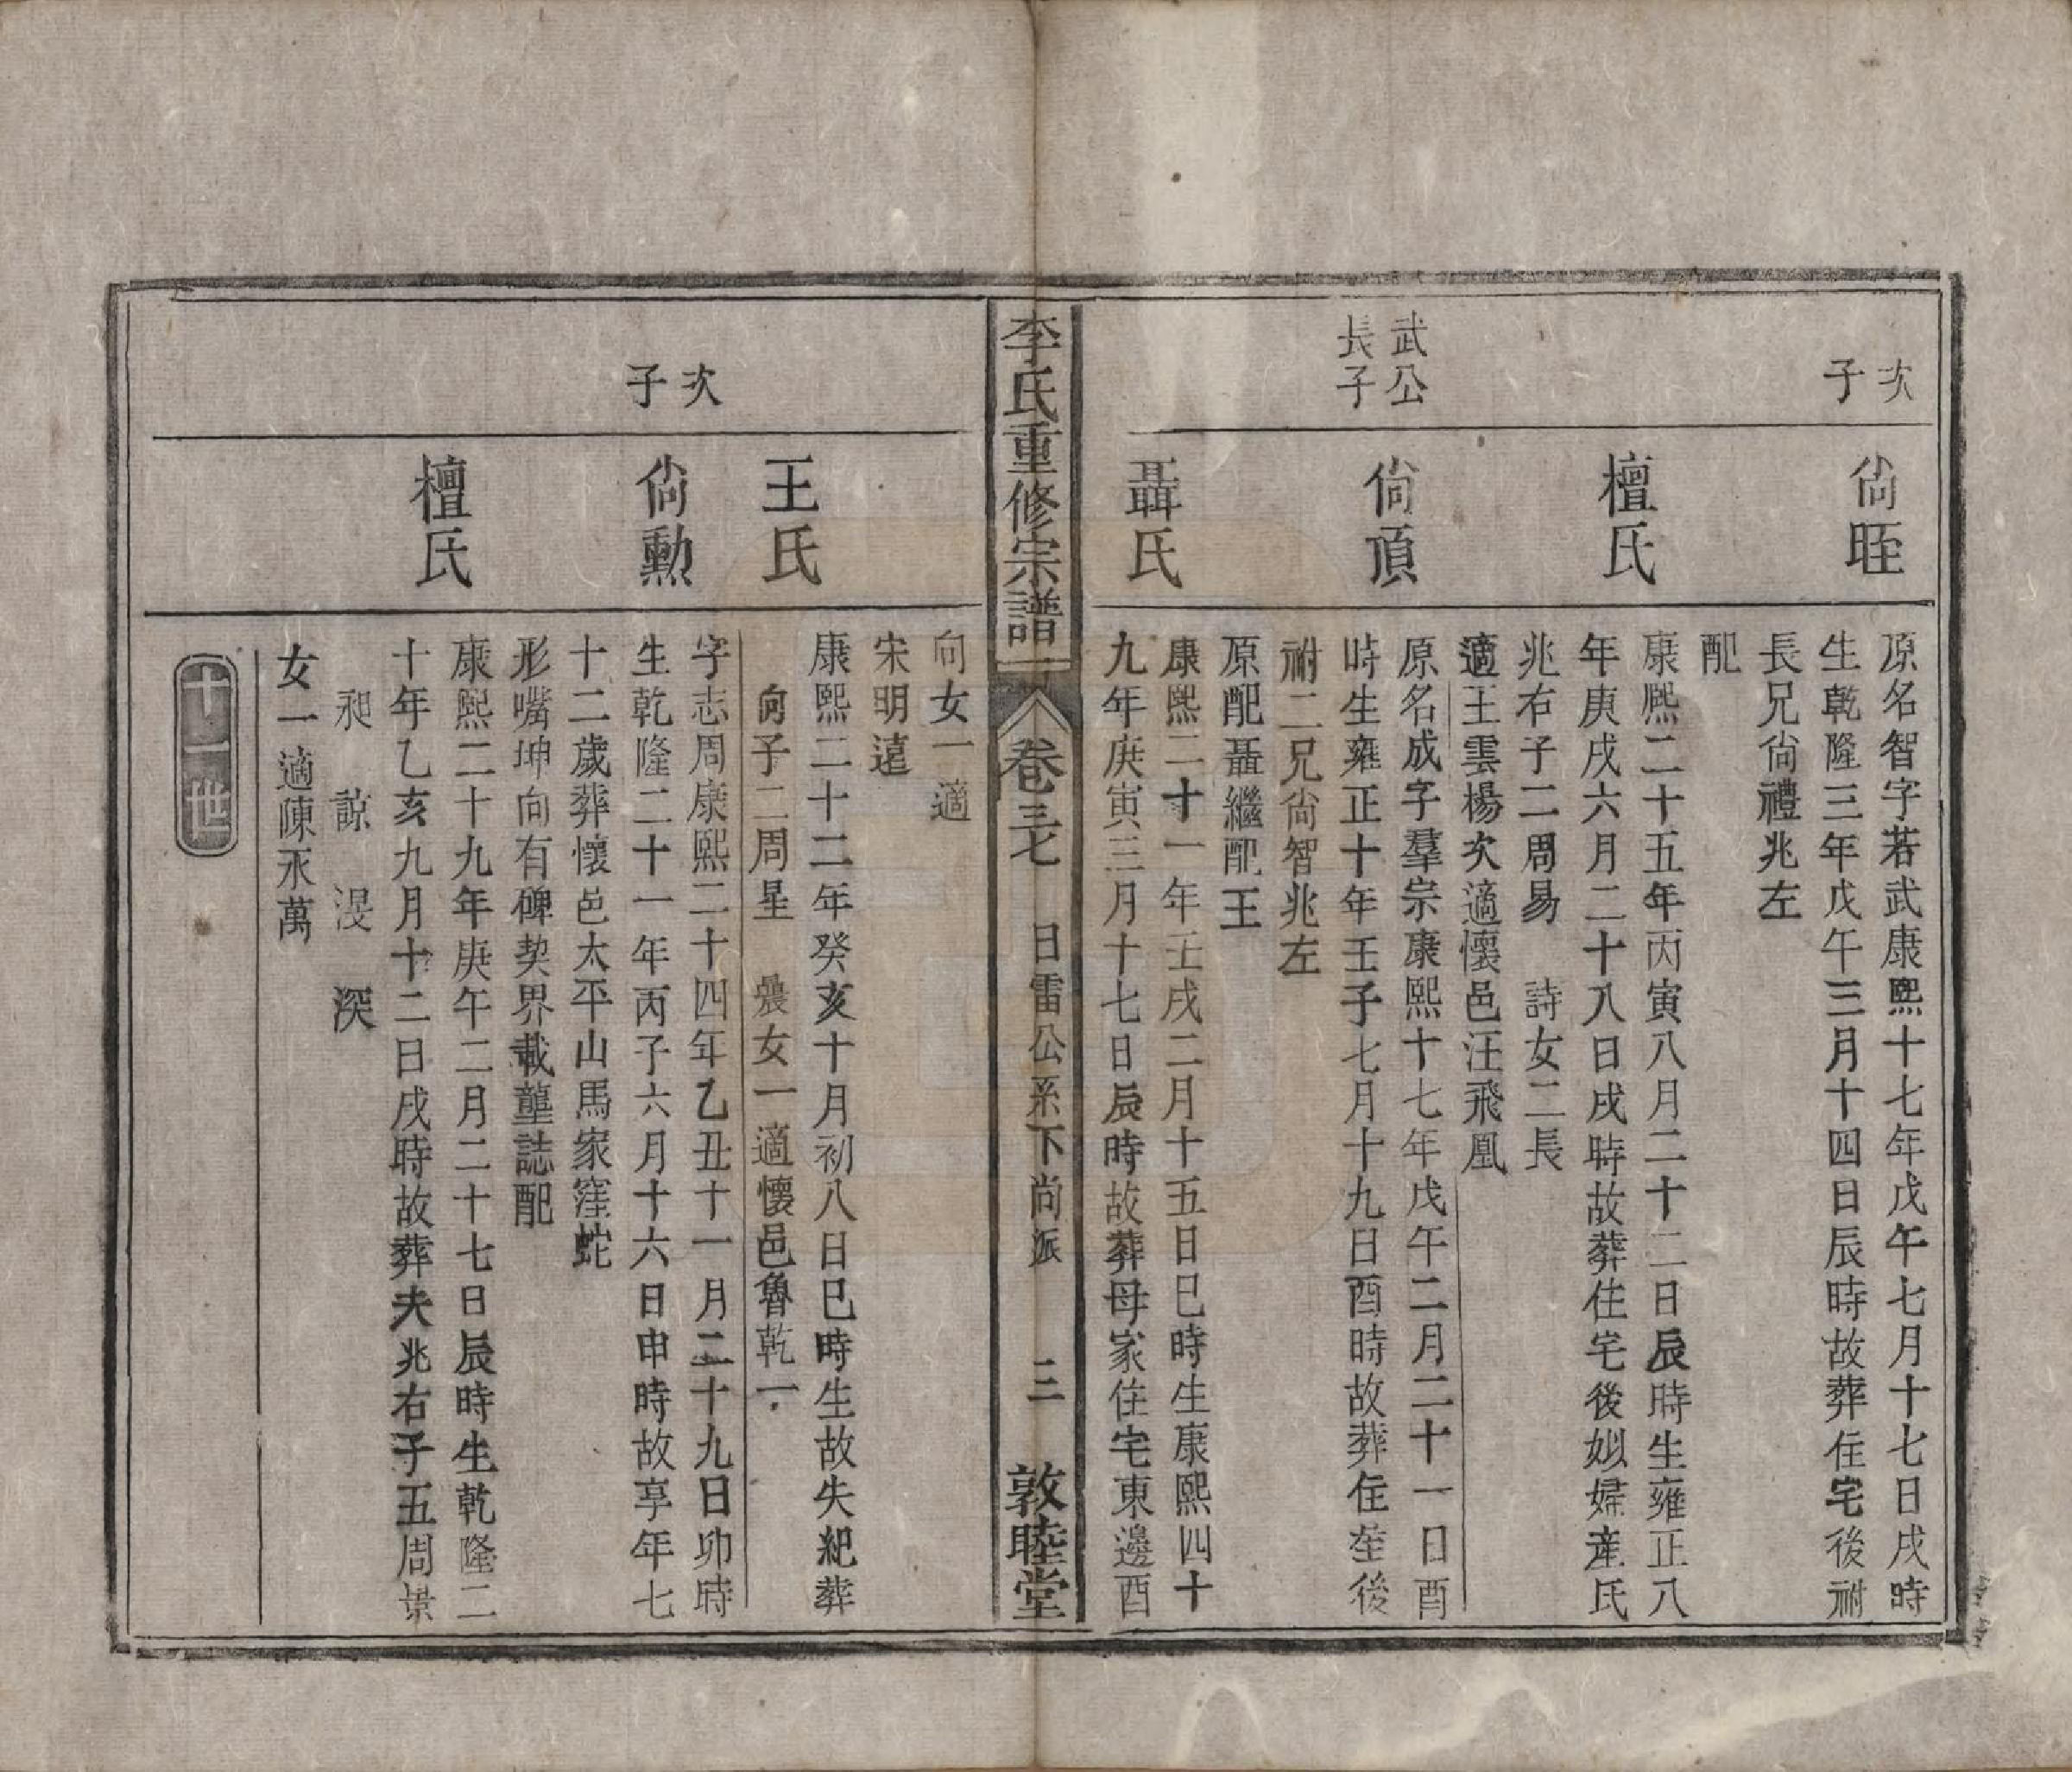 次子
尙眰
原名智字若武康熙十七年戊午七月十七日戌時
生乾隆三年戊午三月十四日辰時故葬住宅後祔
長兄尙禮兆左
配
檀氏
康熙二十五年丙寅八月二十二日辰時生雍正八
年庚戌六月二十八日戌時故葬住宅後姒婦産氏
兆右子二周易 詩女二長
適王雲楊次適懷邑汪飛凰
武公長子
尙頂
原名成字羣宗康熙十七年戊午二月二十一日酉
時生雍正十年壬子七月十九日酉時故葬住茔後
祔二兄尙智兆左
原配聶繼配王
聶氏
康熙二十一年壬戌二月十五日巳時生康熙四十
九年庚寅三月十七日辰時故葬母家住宅東邊酉
李氏重修宗譜
卷三七 日雷公系下尚派 三 敦睦堂
向女一適
宋明遠
王氏
康熙二十二年癸亥十月初八日巳時生故失紀葬
向子二周星 曩女一適懷邑魯乾一
次子
尙勳
字志周康熙二十四年乙丑十一月二十九日卯時
生乾隆二十一年丙子六月十六日申時故享年七
十二歲葬懷邑太平山馬家窪蛇
形嘴坤向有碑契界載壟誌配
檀氏
康熙二十九年庚午二月二十七日辰時生乾隆二
十年乙亥九月十二日戌時故葬夫兆右子五周景
昶 諒 浸 深
女一適陳永萬
十一世